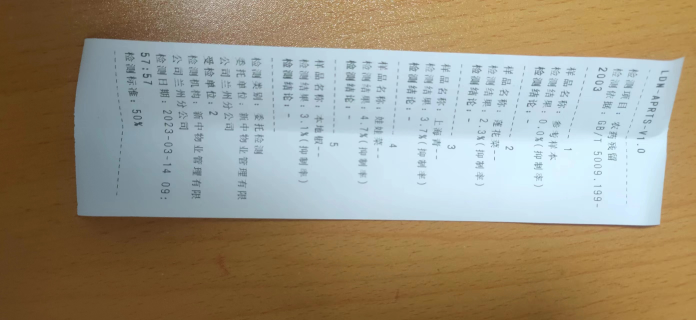 LDN-APRTS-V1.0
检测项目: 农药残留
检测依据: GB/T 5009.199-
2003
1
样品名称: 参考样本
检测结果: 0.0%(抑制率)
检测结论: -
2
样品名称: 莲花菜--
检测结果: 2.3%(抑制率)
检测结论: -
3
样品名称: 上海青--
检测结果: 3.7%(抑制率)
检测结论: -
4
样品名称: 娃娃菜--
检测结果: 4.7%(抑制率)
检测结论: -
5
样品名称: 本地椒--
检测结果: 3.1%(抑制率)
检测结论: -
检测类别: 委托检测
委托单位: 新中物业管理有限
公司兰州分公司
受检单位: 2
检测机构: 新中物业管理有限
公司兰州分公司
检测日期: 2023-03-14 09:
57:57
检测标准: 50%